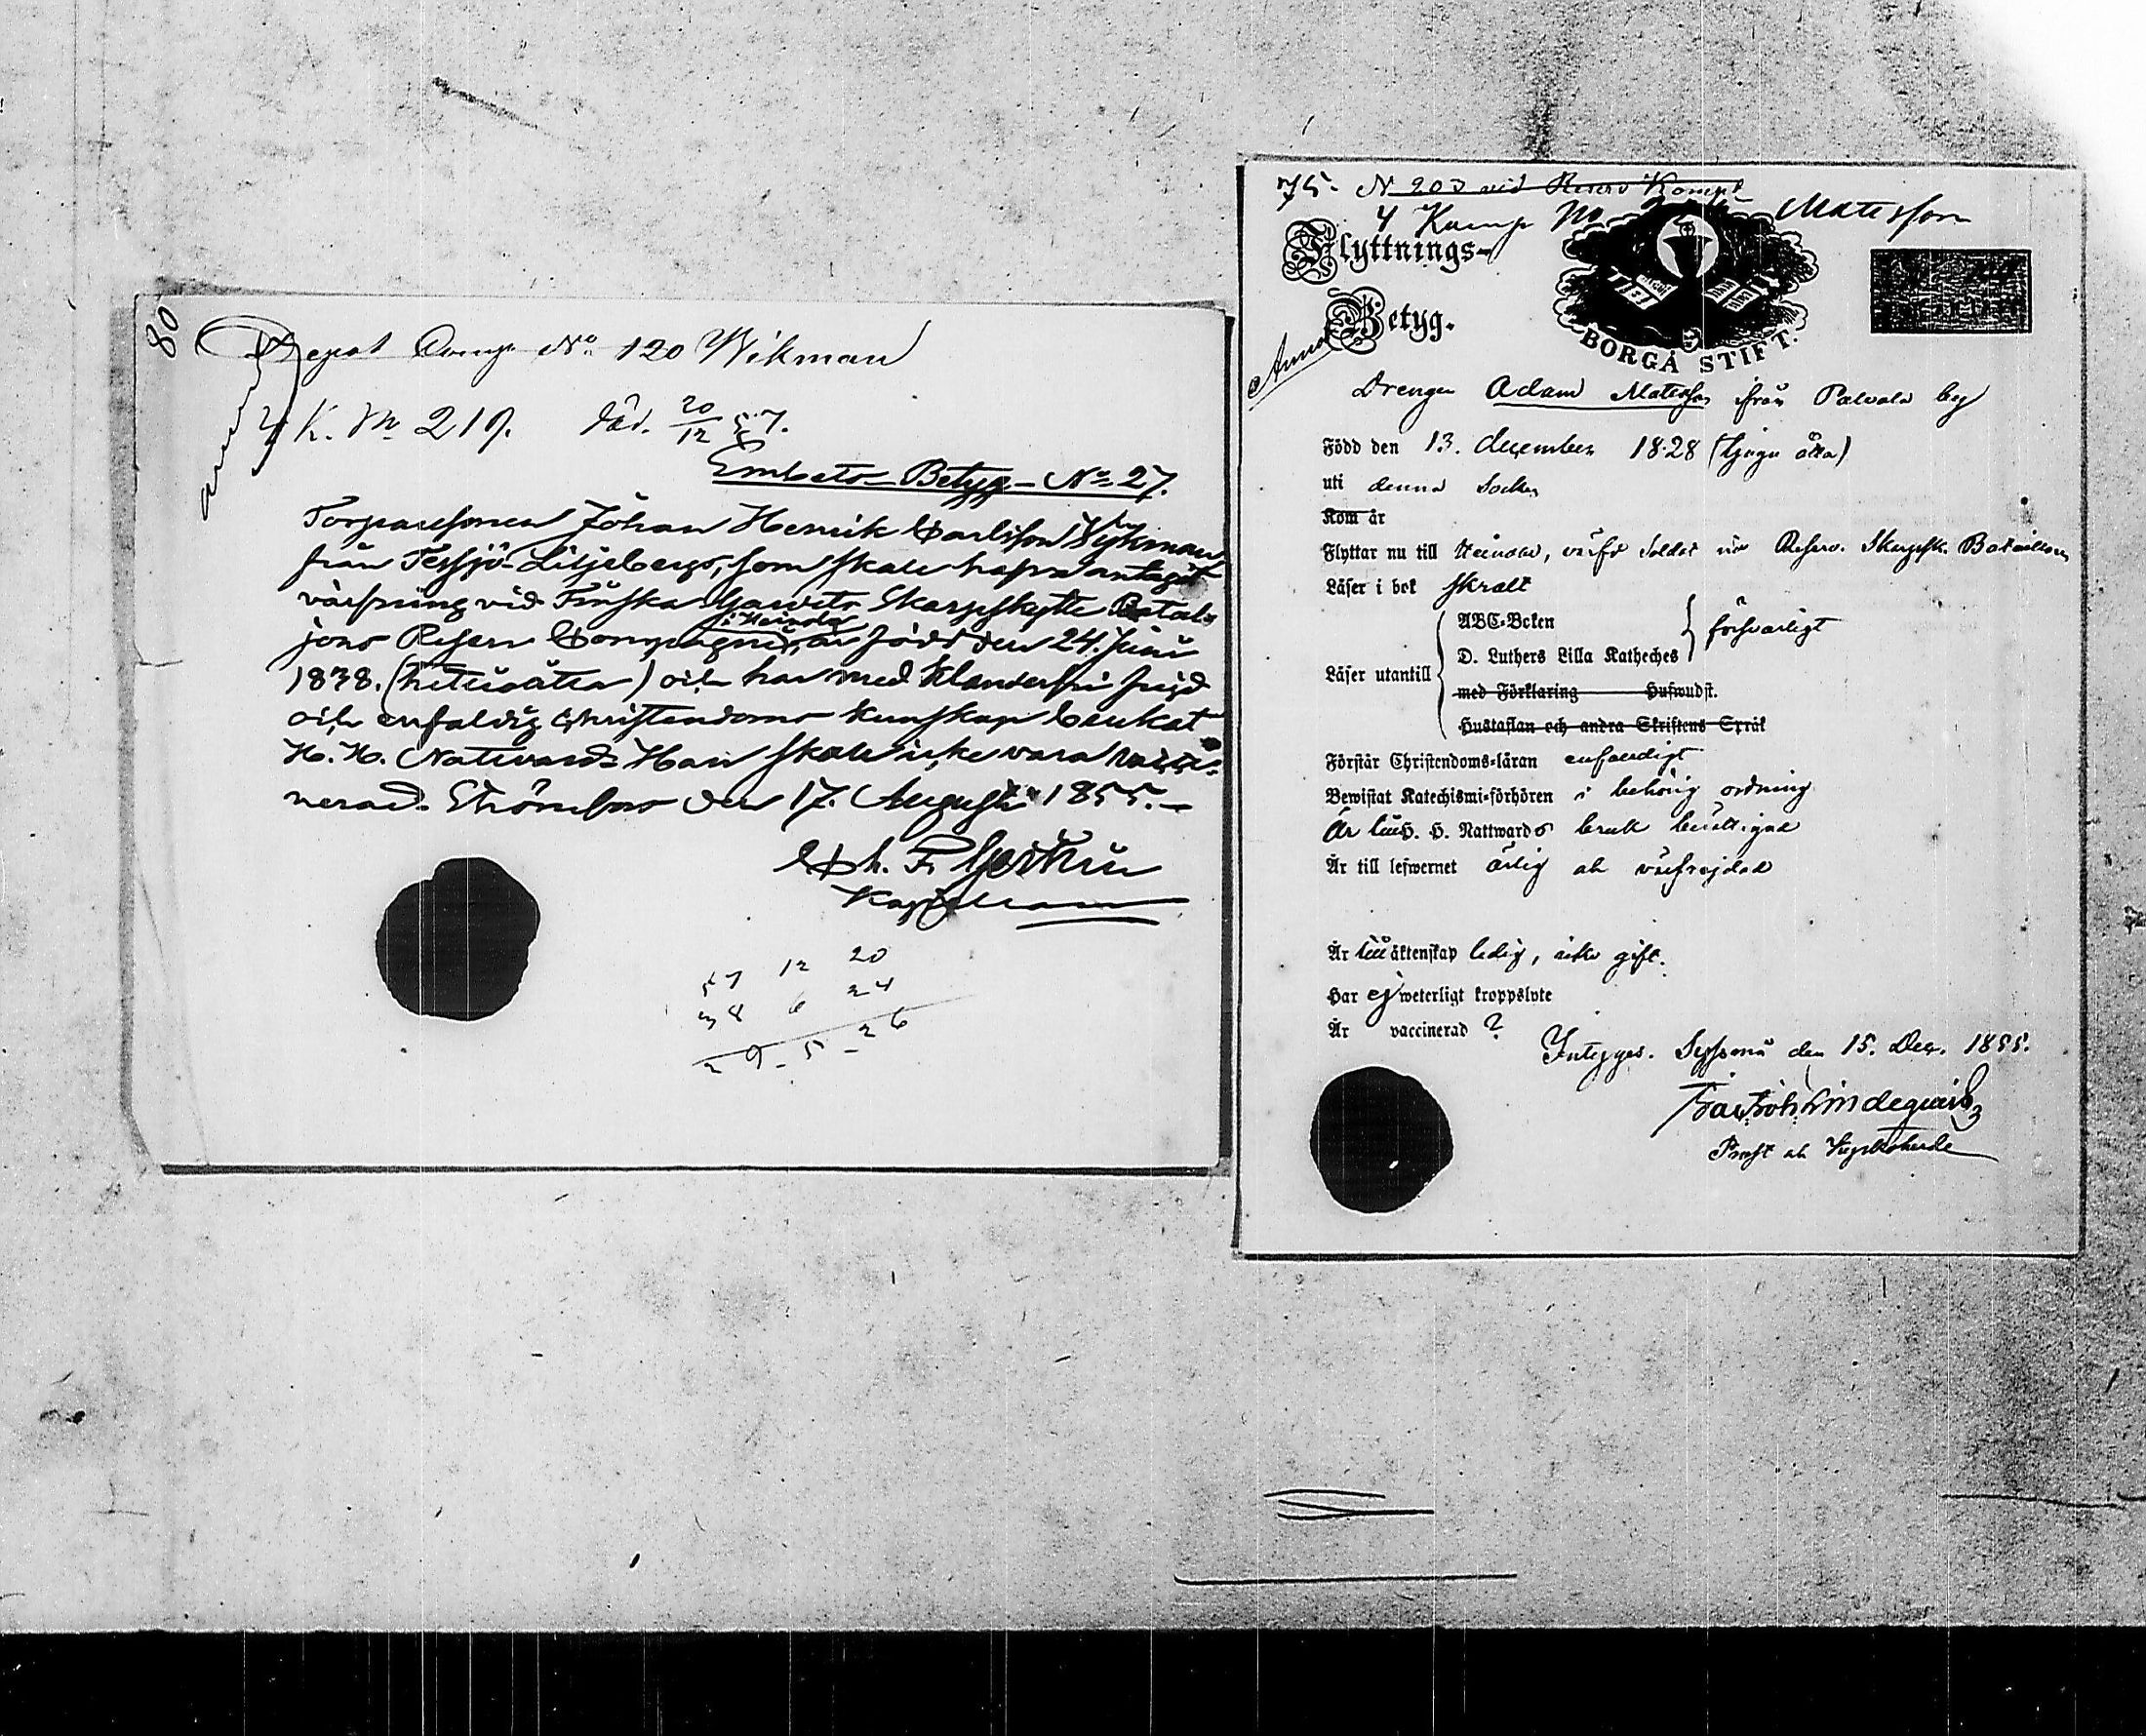 80
Depot Comp. No. 120 Wikman
4 K. No 219. död. 20/12 57.
Embets-Betyg-No. 27.
Torparesonen Johan Henrik Carlsson Wikman
från Tessjö-Liljebergs, som skall hafva antagit
värfning vid Finska Gardets Skarpskytte Batal-
jons Reserv Compagnie, i Heinola är född den 24. Junii
1838. (trettioåtta) och har med klanderfri frejd
och enfaldig Christendoms kunskap brukat
H. H. Nattvard. Han skall icke vara vacci-
nerad. Strömfors den 17. Augusti 1855.-
Kapellan
57 12 20
38 6 24
29-5-26
75. N 203 vid Reserv Komp.
4 Komp No Matesson
Flyttnings-
Betyg.
BORGÅ STIFT.
Drengen Adam Matesson från Palvala by
Född den 13. december 1828 (tjugu åtta)
uti denna Socken
Kom år
Flyttar nu till Heinola, värfd Soldat vid Reserv. Skarpsk. Bataillon
Läser i bok skralt
ABC-Boken
D. Luthers Lilla Katheches } försvarligt
Läser utantill
med Förklaring Hufwudst.
Hustaflan och andra Skriftens Språk
Förstår Christendoms-läran enfaldigt
Bewistat Katechismi-förhören i behörig ordning
Är till H. H. Nattwards bruk berättigad
Är till lefwernet ärlig och välfrejdad
Är till äktenskap ledig, icke gift.
Har ej weterligt kroppslyte
Är vaccinerad ?
Intygas. Sippola den 15. Dec. 1855.
Prost och Kyrkoherde